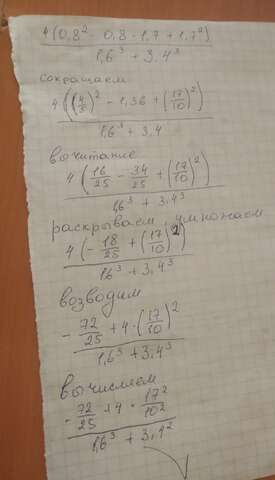 4(0,8² - 0,8 · 1,7 + 1,7²)
1,6³ + 3,4³
сокращаем
4((4/5)² - 1,36 + (17/10)²)
1,6³ + 3,4
вычитание
4(16/25 - 34/25 + (17/10)²)
1,6³ + 3,4³
раскрываем, умножаем
4(-18/25 + (17/10)²)
1,6³ + 3,4³
возводим
- 72/25 + 4 · (17/10)²
1,6³ + 3,4³
вычисляем
- 72/25 + 4 · 17²/10²
1,6³ + 3,4²